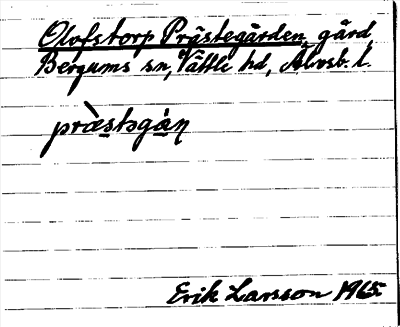 Olofstorp Prästegården, gård,
Bergums sn, Vättle hd, Älvsb. l.
præ̀stəgàɳ
Erik Larsson 1965